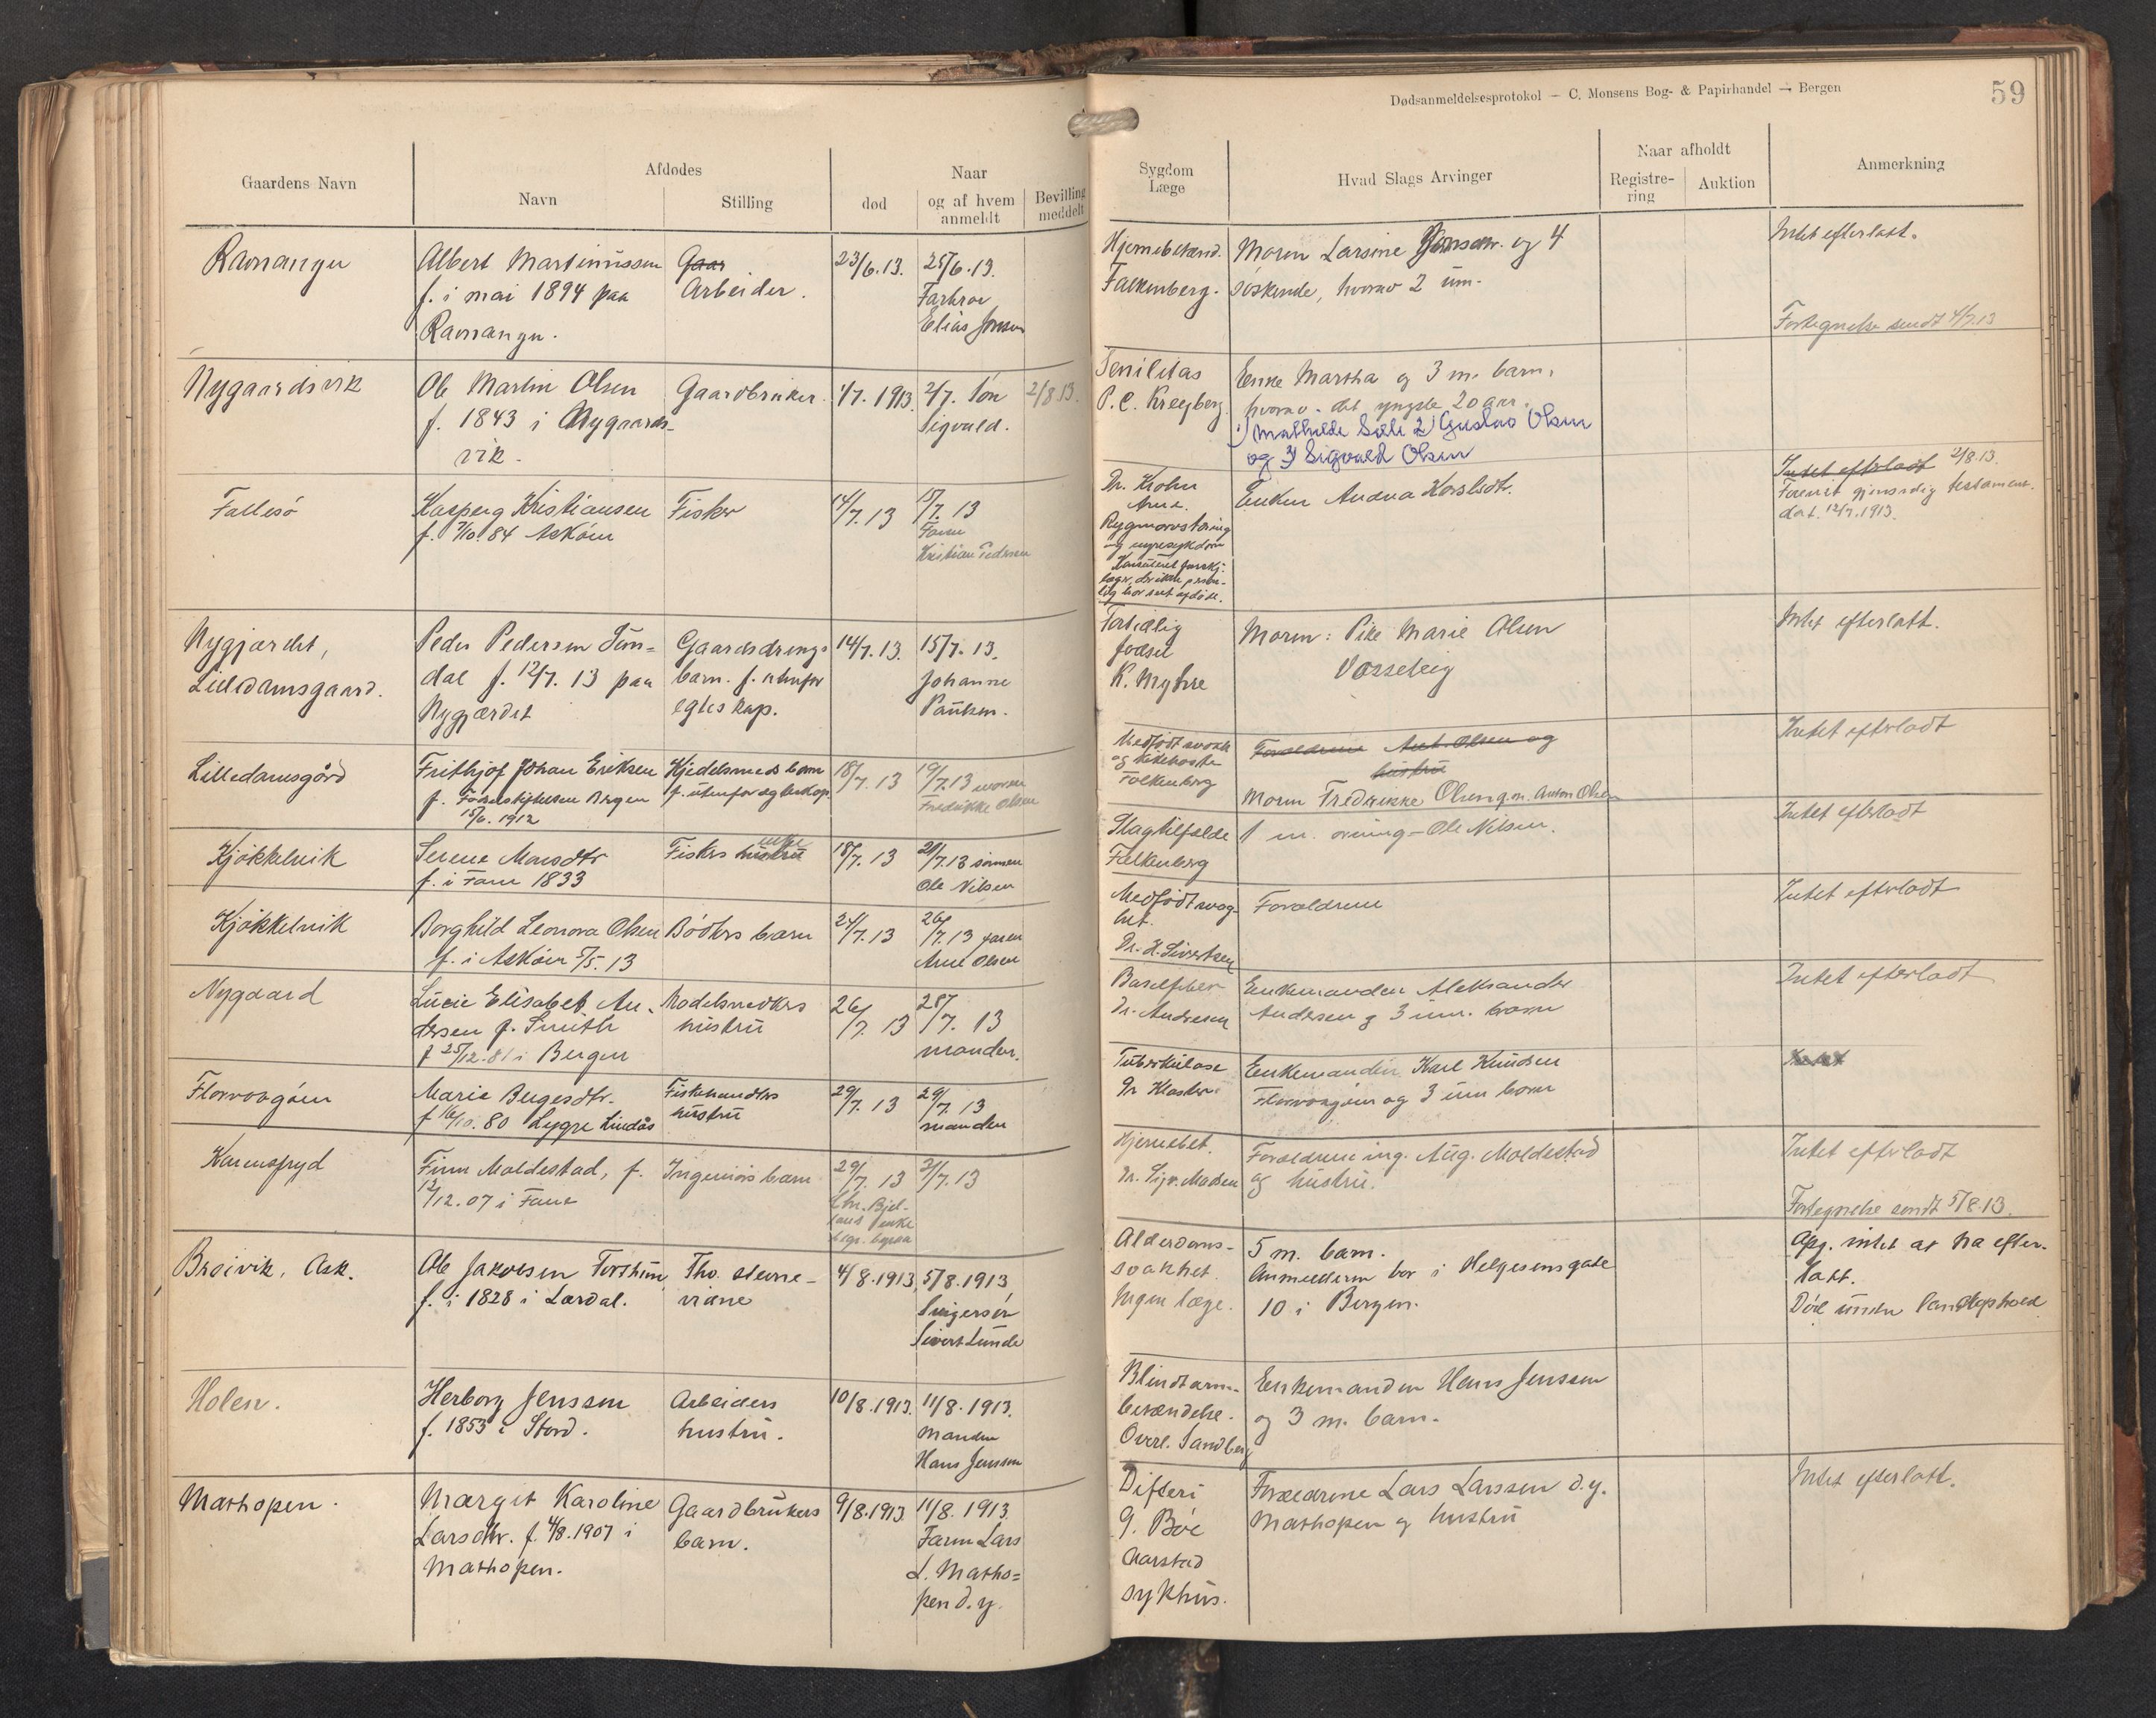 Dødsanmeldelsesprotokol — C. Monsens Bog- & Papirhandel — Bergen
59
Gaardens Navn
Afdødes
Navn
Stilling
Naar
død
og af hvem
anmeldt
Bevilling
meddelt
Sygdom
Læge
Hvad Slags Arvinger
Naar afholdt
Registre-
ring
Auktion
Anmerkning
Ravnanger
Albert Martinussen
f. i mai 1894 paa
Ravnanger.
Gaar
Arbeider.
23/6.13.
25/6.13.
Farbror
Elias Jonsen
Hjernebetænd.
Falkenberg.
Moren Larsine Jonsen. og 4
søskende, hvorav 2 um.
Intet efterlatt.
Fortegnelse sendt 4/7.13
Nygaardsvik
Ole Martin Olsen
f. 1843 i Nygaards-
vik.
Gaardbruker.
1/7.1913.
2/7. Søn
Sigvald.
2/8.13.
Senilitas
P. C. Kreyberg.
Enke Martha og 3 m. barn,
hvorav det yngste 20 aar.
1) Mathilde Sæle 2) Gustav Olsen
og 3) Sigvald Olsen
Intet efterladt 2/8.13.
Forenet gjensidig testament.
dat. 12/7.1913.
Follesø
Kasper Kristiansen
f. 7/10.84 Askøen
Fisker
14/7.13
15/7.13
Faren
Kristian Pedersen
Dr. Krohn
Arna.
Rygmarvstæring
og nyresykdom
Enken Andrea Karlsdt.
Nygjærdet,
Lilledamsgaard.
Peder Pedersen Tøm-
dal f. 12/7.13 paa
Nygjærdet
Gaardsdrengs
barn. f. utenfor
egteskap.
14/7.13.
15/7.13.
Johanne
Paulsen.
Fortidlig
fødsel
K. Myhre
Moren: Pike Marie Olsen
Intet efterlatt.
Lilledamsgård
Frithjof Johan Eriksen
f. Fødselsstiftelsen Bergen
15/6.1912
Kjedelsmeds barn
f. utenfor egteskap.
18/7.13
19/7.13 moren
Fredrikke Olsen
Medfødt svakh
og kikhoste
Falkenberg
Forældrene Ant. Olsen og
hustru
Moren Fredrikke Olsen g.m. Anton Olsen
Intet efterladt
Kjøkkelvik
Serene Monsdtr
f. i Fane 1833
Fiskers hustru
enke
18/7.13
21/7.13 sønnen
Ole Nilsen
Slagtilfælde
Falkenberg
1 m. arving - Ole Nilsen.
Intet efterladt
Kjøkkelvik
Borghild Leonora Olsen
f. i Askøen 5/5.13
Bødkers barn
24/7.13
26/7.13 faren
Arne Olsen
Medfødt svag-
het.
Dr. H. Sivertsen
Forældrene
Intet efterladt
Nygaard
Lucie Elisabet An-
dersen f. Smith
f 25/12.81 i Bergen
Modelsnedkers
hustru
26/7.13
28/7.13
manden.
Barselfeber
Dr. Andresen
Enkemanden Aleksander
Andersen og 3 um. barn
Intet efterladt
Florvaagøen
Marie Bergesdtr.
f 16/10.80 Lygre Lindås
Fiskehandlers
hustru
29/7.13
29/7.13
manden
Tuberkulose
Dr Kloster
Enkemanden Karl Knudsen
Florvaagøen og 3 um barn
Intet
Karensfryd
Finn Moldestad, f.
12/12.07 i Fane
Ingeniørs barn
29/7.13
31/7.13
Hjernebet.
Dr. Sigv. Madsen
Forældrene ing. Aug. Moldestad
og hustru.
Intet efterladt
Fortegnelse sendt 5/8.13.
Breivik, Ask.
Ole Jakobsen
f. i 1828 i Lærdal.
Fhv. stevne-
vidne
4/8.1913
5/8.1913
Svigersøn
Sivert Lunde
Alderdoms-
svakhet.
Ingen læge.
5 m. barn.
Anmelderen bor i Helgesensgate
10 i Bergen.
Opg. intet at ha efter-
latt.
Død under landophold
Holen.
Herborg Jenssen
f. 1853 i Stord.
Arbeiders
hustru.
10/8.1913.
11/8.1913.
Manden
Hans Jenssen
Blindtarm-
betændelse.
Overl. Sandberg
Enkemanden Hans Jenssen
og 3 m. barn.
Mathopen.
Margit Karoline
Larsdtr. f. 4/8.1907 i
Mathopen.
Gaardbrukers
barn.
9/8.1913.
11/8.1913.
Faren Lars
L. Matho=
pen d.y.
Difteri
G. Bøe
Aarstad
sykhus.
Forældrene Lars Larssen d.y.
Mathopen og hustru
Intet efterlatt.